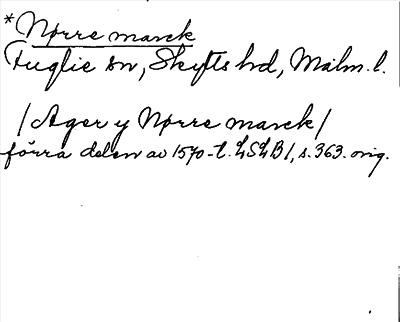 *Nørre marck
Fuglie sn, Skytts hd, Malm. l.
/Ager y Nørre marck/
förra delen av 1570-t. LSLB1, s. 363. orig.